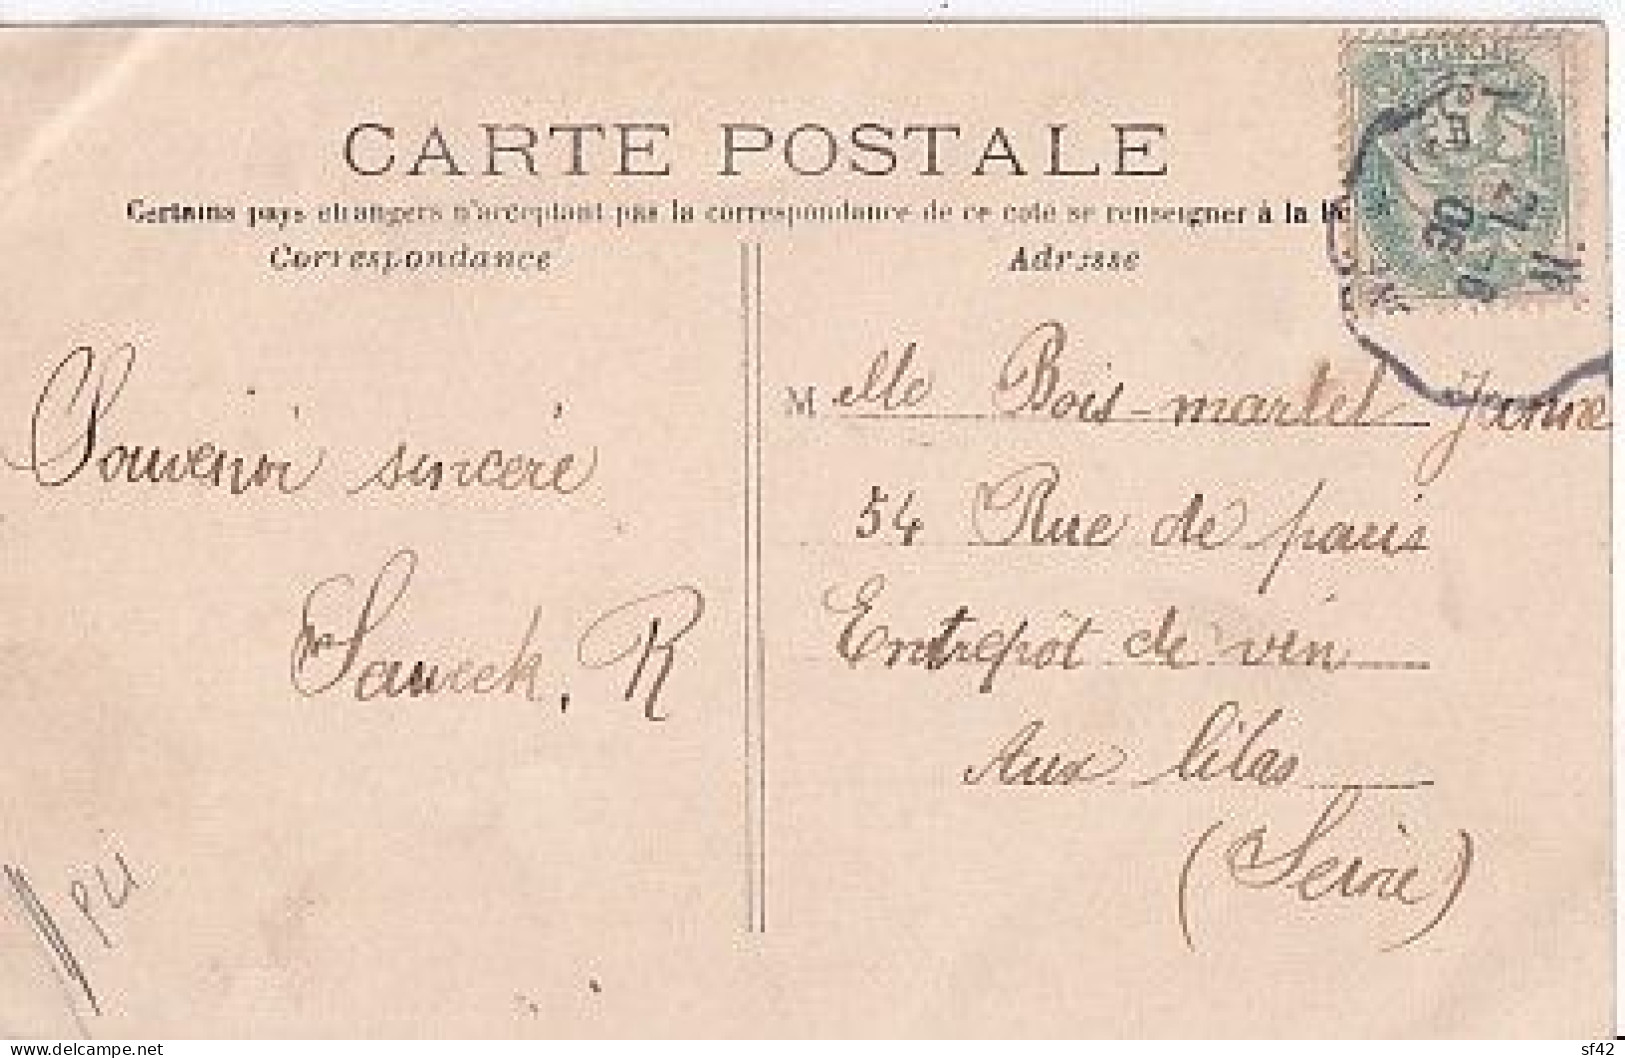 CARTE POSTALE
Certains pays étrangers n'acceptent pas la correspondance de ce coté se renseigner à la
Correspondance
Adresse
Souvenir sincère
Saweck, R
Mlle Bois-martel Jeanne
54 Rue de paris
Entrepôt de vin
Aux lilas
(Seine)
sf42